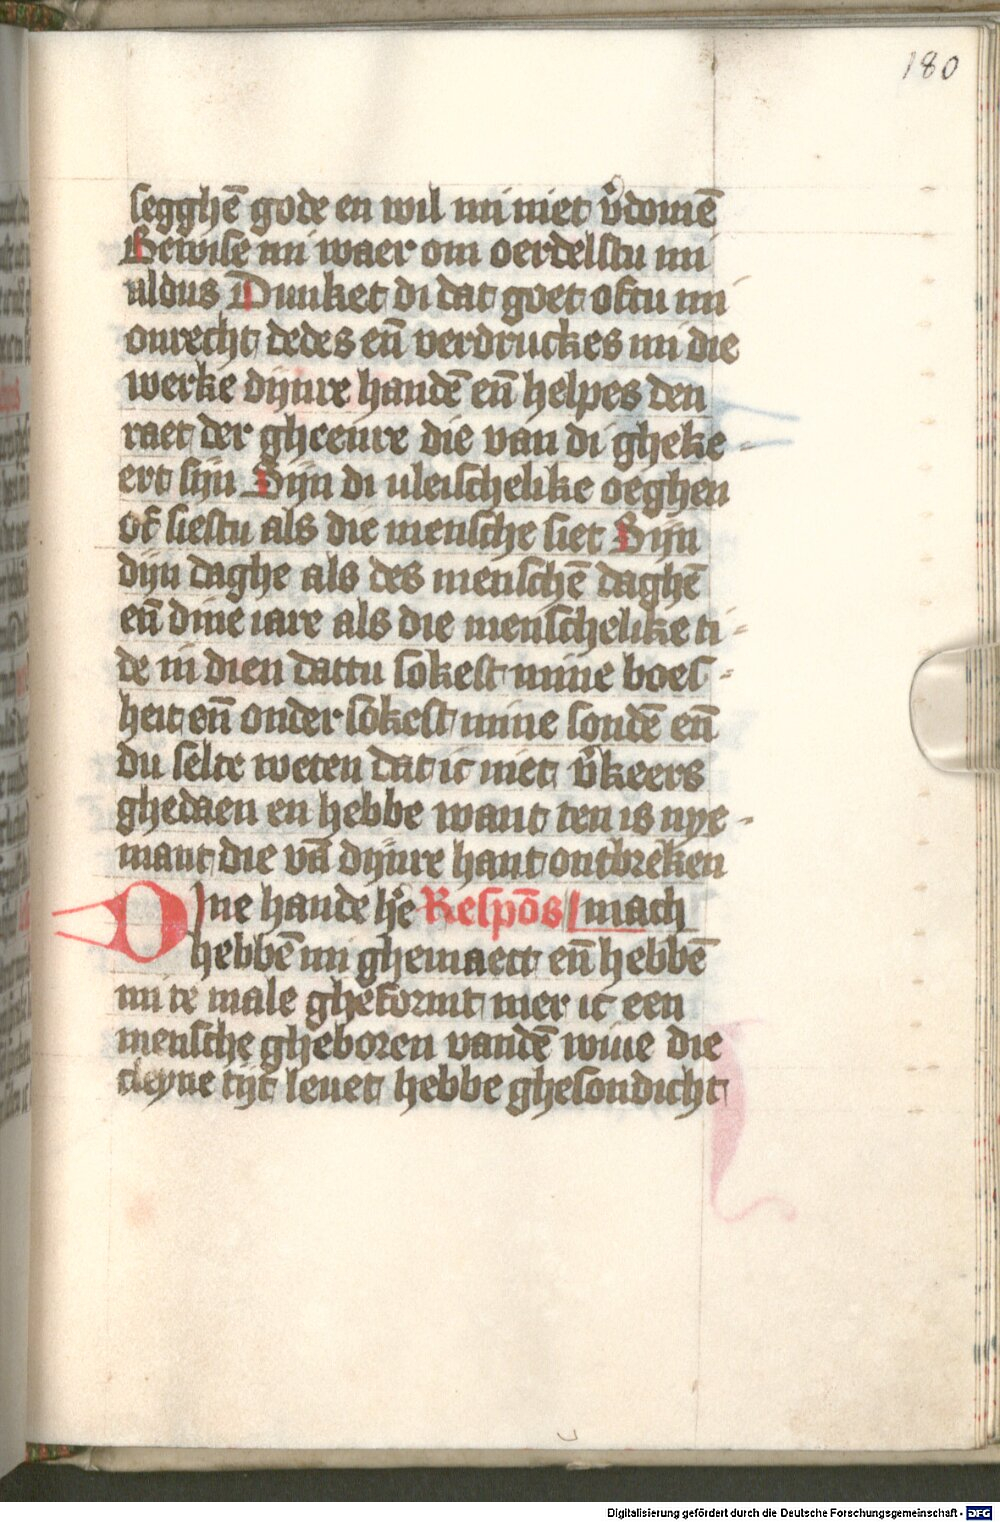 180
segghē gode en wil mi niet v̄domē
Bewise mi waer om oerdelstu mi
aldus Dunket di dat goet oftu mi
onrecht dedes en̄ verdruckes mi die
werke dijnre handē en̄ helpes den
raet der gheenre die van di gheke-
ert sijn Sijn di uleischelike oeghen
of siestu als die mensche siet Sijn
dijn daghe als des menschē daghē
en̄ dine iare als die menschelike ti-
de in dien dattu sokest mine boes-
heit en̄ onder sokest mine sondē en̄
du selte weten dat ic niet v̄keers
ghedaen en hebbe want ten is nye-
mant die vā dijnre hant ontbreken
Dine hande he Respōs mach
hebbē mi ghemaect en̄ hebbē
mi te male gheformt mer ic een
mensche gheboren vandē wiue die
cleyne tijt leuet hebbe ghesondicht
Digitalisierung gefördert durch die Deutsche Forschungsgemeinschaft - DFG